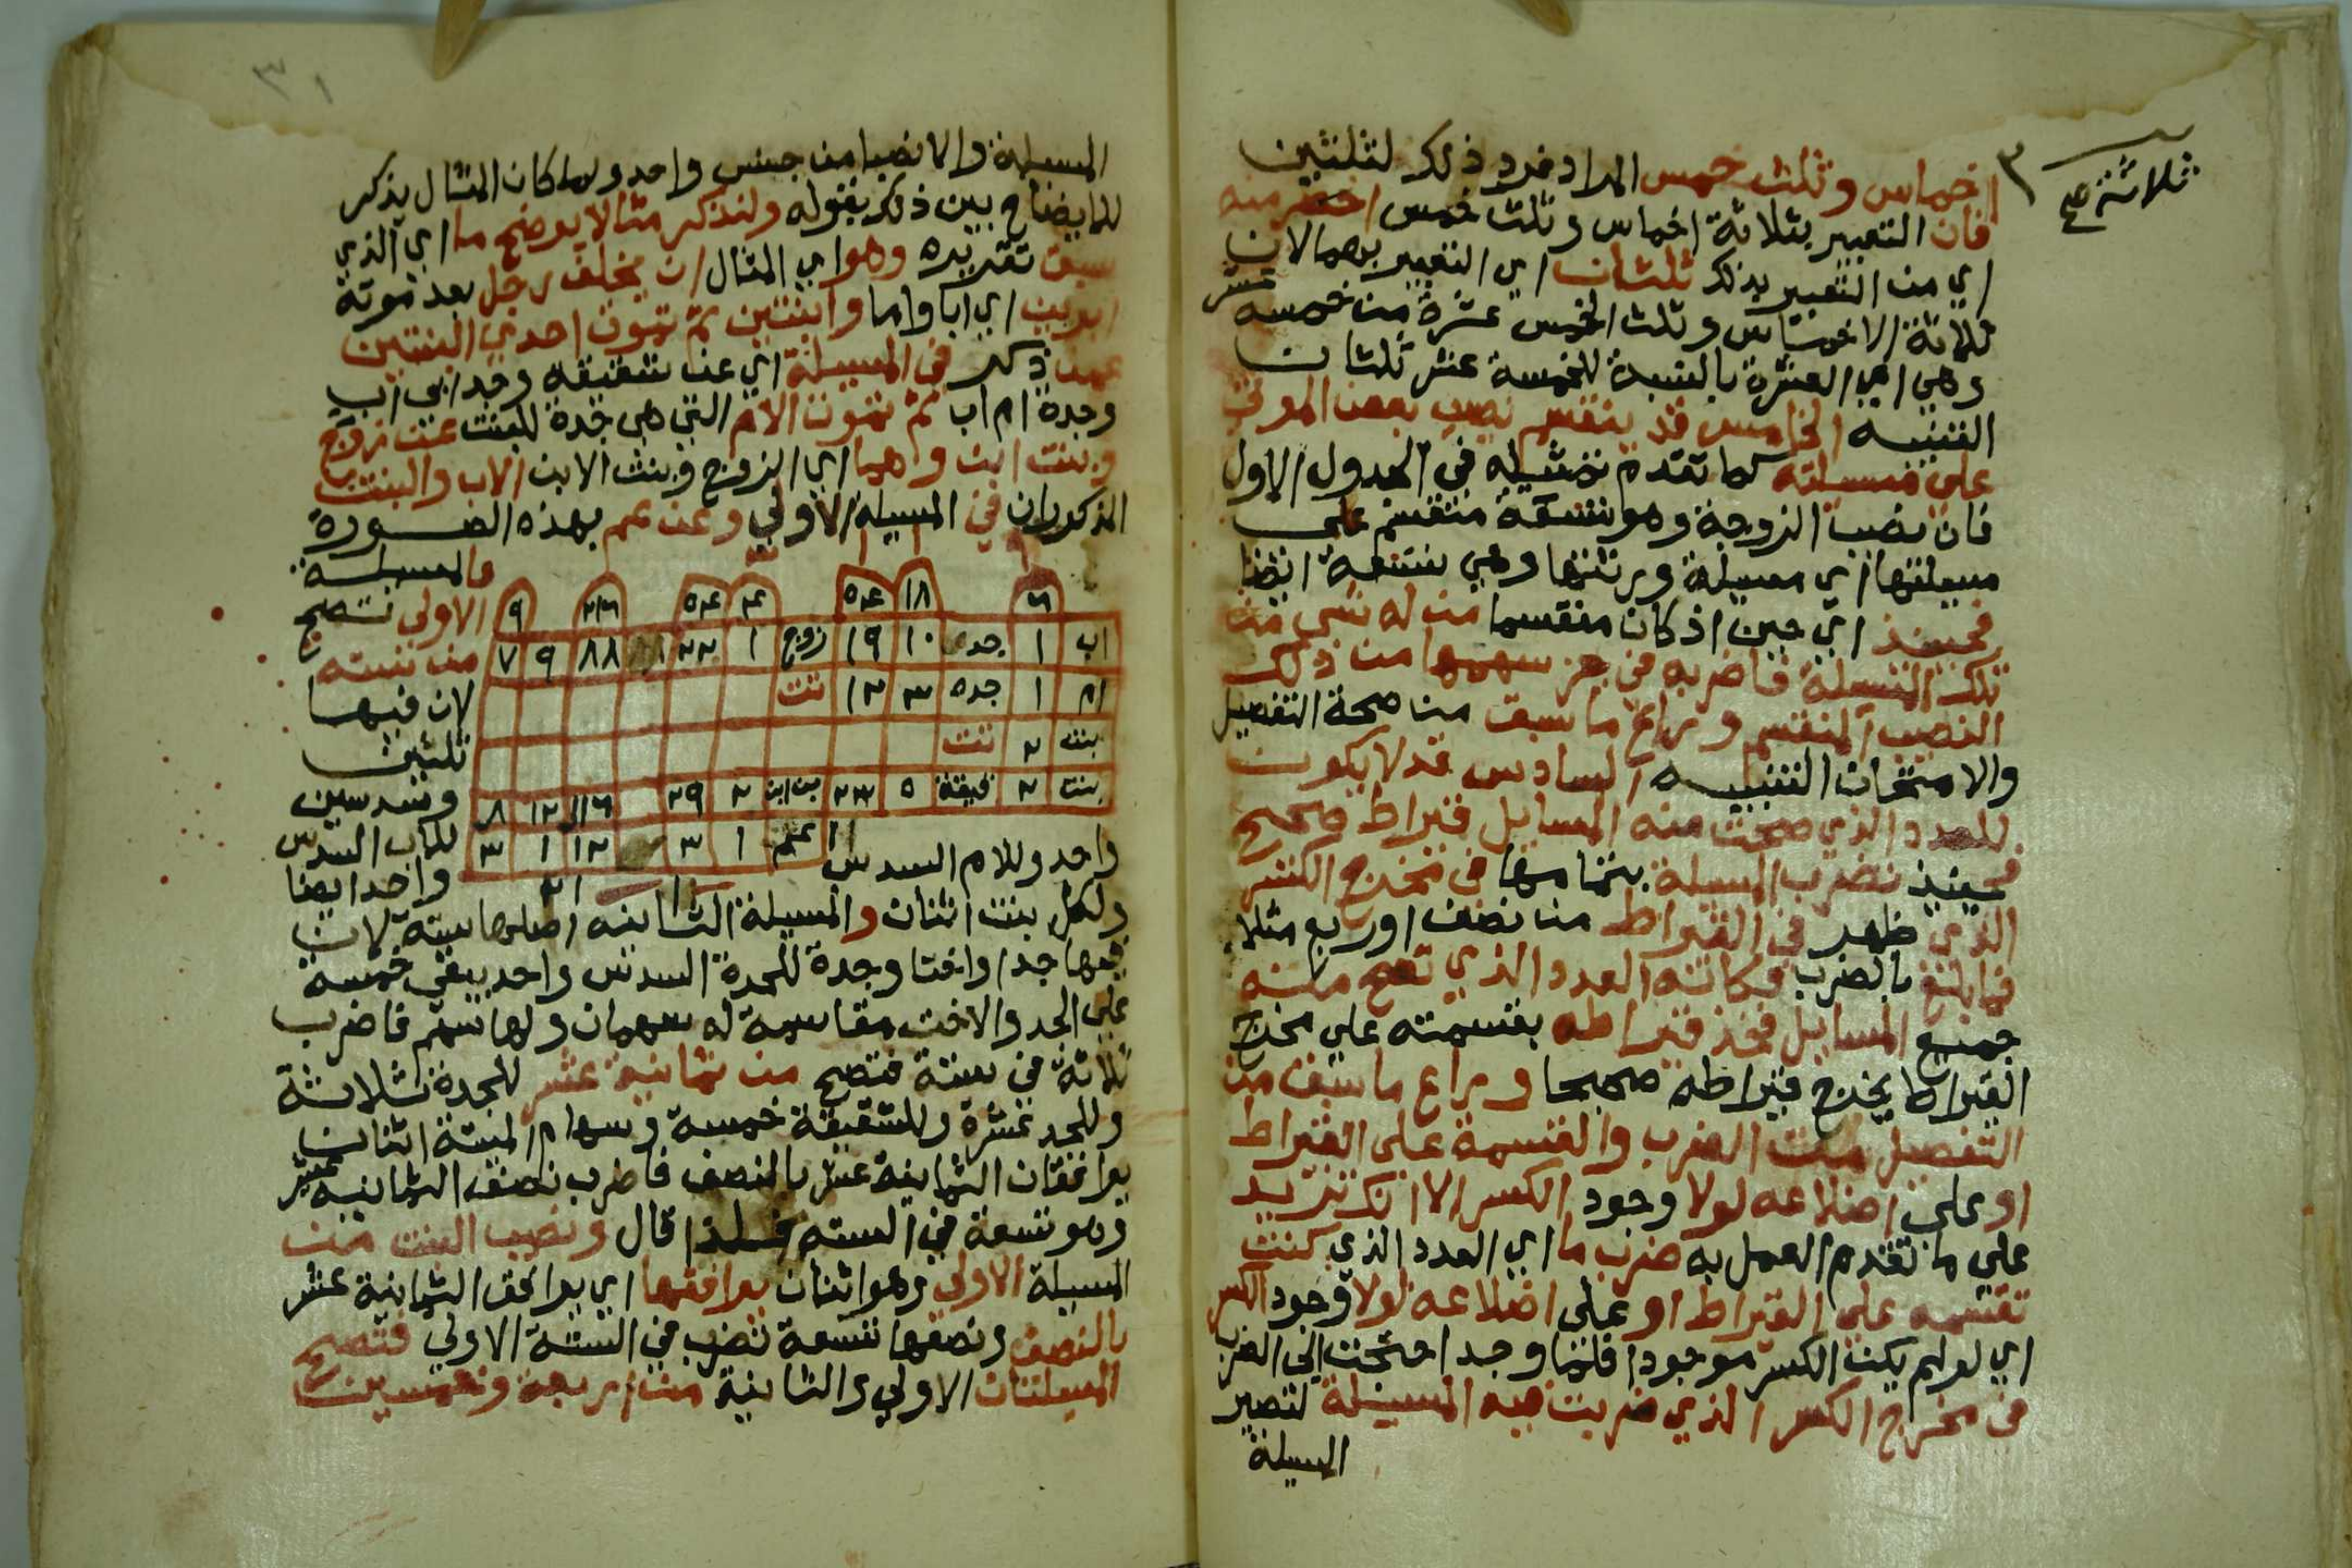 ثلاثة صح
اخماس وثلث خمس المراد فرد ذلك لثلثين
فان التعبير بثلاثة اخماس وثلث خمس اخصر منه
اي من التعبير بذلك ثلثان اي التعبير بهما لان
ثلاثة الاخماس وثلث الخمس عشرة من خمسه عشر
وهي اي العشرة بالنسبة للخمسة عشر ثلثان
التنبيه الخامس قد ينقسم نصيب بعض الموتى
على مسيلته كما تقدم تمثيله في الجدول الاول
فان نصيب الزوجة وهو تسعة منقسم على
مسيلتها اي مسيلة ورثتها وهي تسعة ايضا
فحينيذ اي حين اذ كان منقسما من له شي من
تلك المسيلة فاضربه في جز سهمها من ذلك
النصيب المنقسم وراع ما سبق من صحة التفصيل
والامتحان التنبيه السادس قد لا يكون
للعدد الذي صحت منه المسايل قيراط صحيح
فحينيذ تضرب المسيلة بتمامها في مخرج الكسر
الذي ظهر في القيراط من نصف او ربع مثلا
فما بلغ بالضرب فكانه العدد الذي تصح منه
جميع المسايل فخذ قيراطه بقسمته علي مخرج
القيراط يخرج قيراطه صحيحا وراع ما سبق من
التفصيل من الضرب والقسمة على القيراط
او على اضلاعه لولا وجود الكسر الا انك تزيد
على ما تقدم العمل به ضرب ما اي العدد الذي كنت
تقسمه على القيراط او على اضلاعه لولا وجود الكسر
اي لو لم يكن الكسر موجودا فلما وجد احتجت الى الضرب
في مخرج الكسر الذي ضربت فيه المسيلة لتصير
المسيلة
٣١
المسيلة والانصبا من جنس واحد ولما كان المثال يذكر
للايضاح بين ذلك بقوله ولنذكر مثالا يوضح ما اي الذي
سبق تقريره وهو اي المثال ان يخلف رجل بعد موته
ابوين اي ابا واما وابنتين ثم تموت احدي البنتين
عمن ذكر في المسيلة اي عن شقيقه وجد ابي اب
وجدة ام اب ثم تموت الام التي هي جدة للبنت عن زوج
وبنت ابن وهما اي الزوج وبنت الابن الاب والبنت
المذكوران في المسيلة الاولي وعن عم بهذه الصورة
فالمسيلة
الاولى تصح
من ستة
لان فيها
ثلثين
وسدسين
للاب السدس
واحد وللام السدس واحد ايضا
٦ ١٨ ٥٤ ٤ ٥٤ ٢١٦ ٩
اب ١ جد ١٠ ١٩ زوج ١ ٢٢ ٨٨ ٩ ٧
ام ١ جده ٣ ١٢ تت
بنت ٢ تت
بنت ٢ شقيقة ٥ ٢٣ بنت ابن ٢ ٢٩ ١١٦ ١٢ ٨
عم ١ ٣ ١٢ ١ ٣
ولكل بنت اثنان والمسيلة الثانيه اصلها ستة لان
فيها جدا واختا وجدة للجدة السدس واحد يبقى خمسة
على الجد والاخت مقاسمة له سهمان ولها سهم فاضرب
ثلاثة في ستة فتصح من ثمانية عشر للجدة ثلاثة
وللجد عشرة وللشقيقة خمسة وسهام الميتة اثنان
يوافقان الثمانية عشر بالنصف فاضرب نصف الثمانيه عشر
وهو تسعة في السته فلذا قال ونصيب البنت من
المسيلة الاولى وهو اثنان يوافقها اي يوافق الثمانية عشر
بالنصف ونصفها تسعة تضرب في الستة الاولي فتصح
المسيلتان الاولي والثانية من اربعة وخمسين